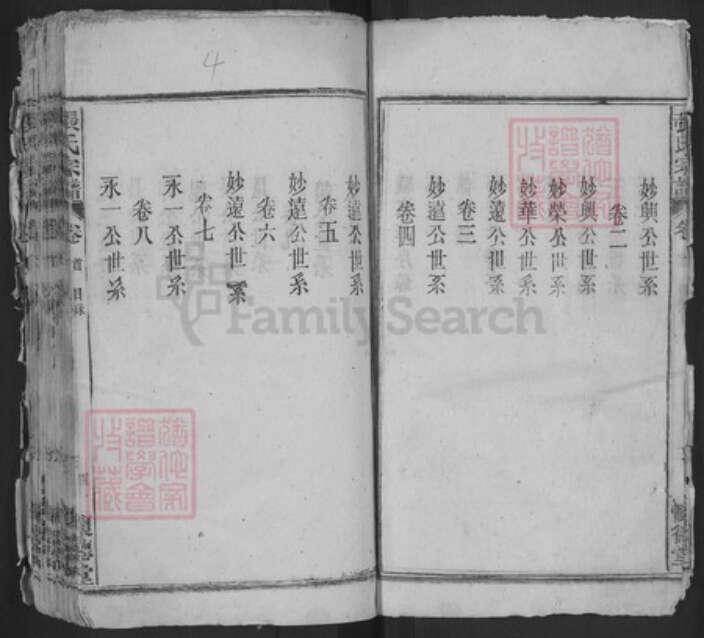 妙興公世系
卷二
妙興公世系
妙榮公世系
妙華公世系
妙遠公世系
卷三
妙遠公世系
卷四
妙遠公世系
卷五
妙遠公世系
卷六
妙遠公世系
卷七
永一公世系
卷八
永一公世系
氏宗譜
卷首
目錄
4
FamilySearch